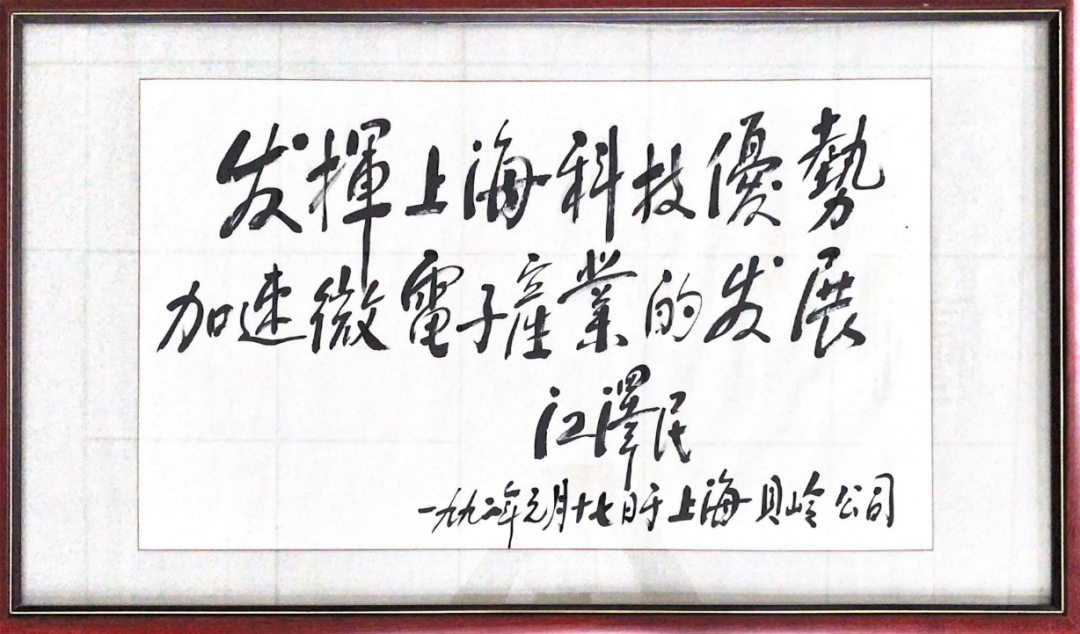 发揮上海科技優勢
加速微電子產業的发展
江澤民
一九九二年元月十七日于上海贝岭公司